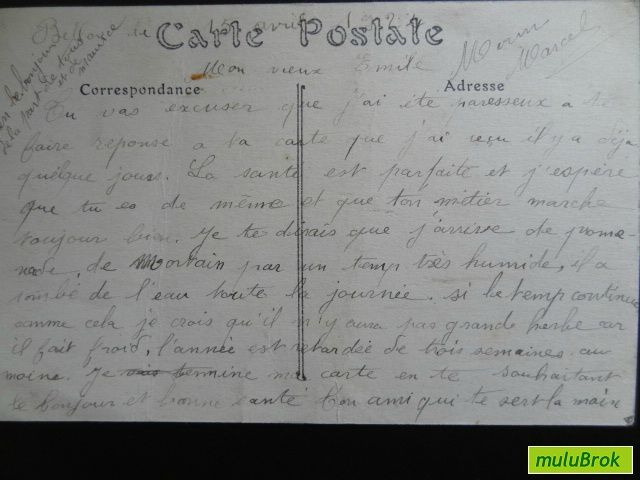 Carte Postale
Mon vieux Emile
Correspondance
Adresse
Marcel
Tu vas excuser que j'ai été paresseux a te
faire reponse a ta carte que j'ai reçu il y a déja
quelque jours. La santé est parfaite et j'espère
que tu es de même et que ton métier marche
toujour bien. Je te dirais que j'arrive de prome-
nade, de Mortain par un temp très humide, il a
tombé de l'eau toute la journée. si le temp continue
comme cela je crois qu'il n'y aura pas grande herbe car
il fait froid, l'année est retardée de trois semaines au
moine. Je termine ma carte en te souhaitant
le bonjour et bonne santé Ton ami qui te sert la main
un bonjour
de la part de tous
et de
maurice
muluBrok